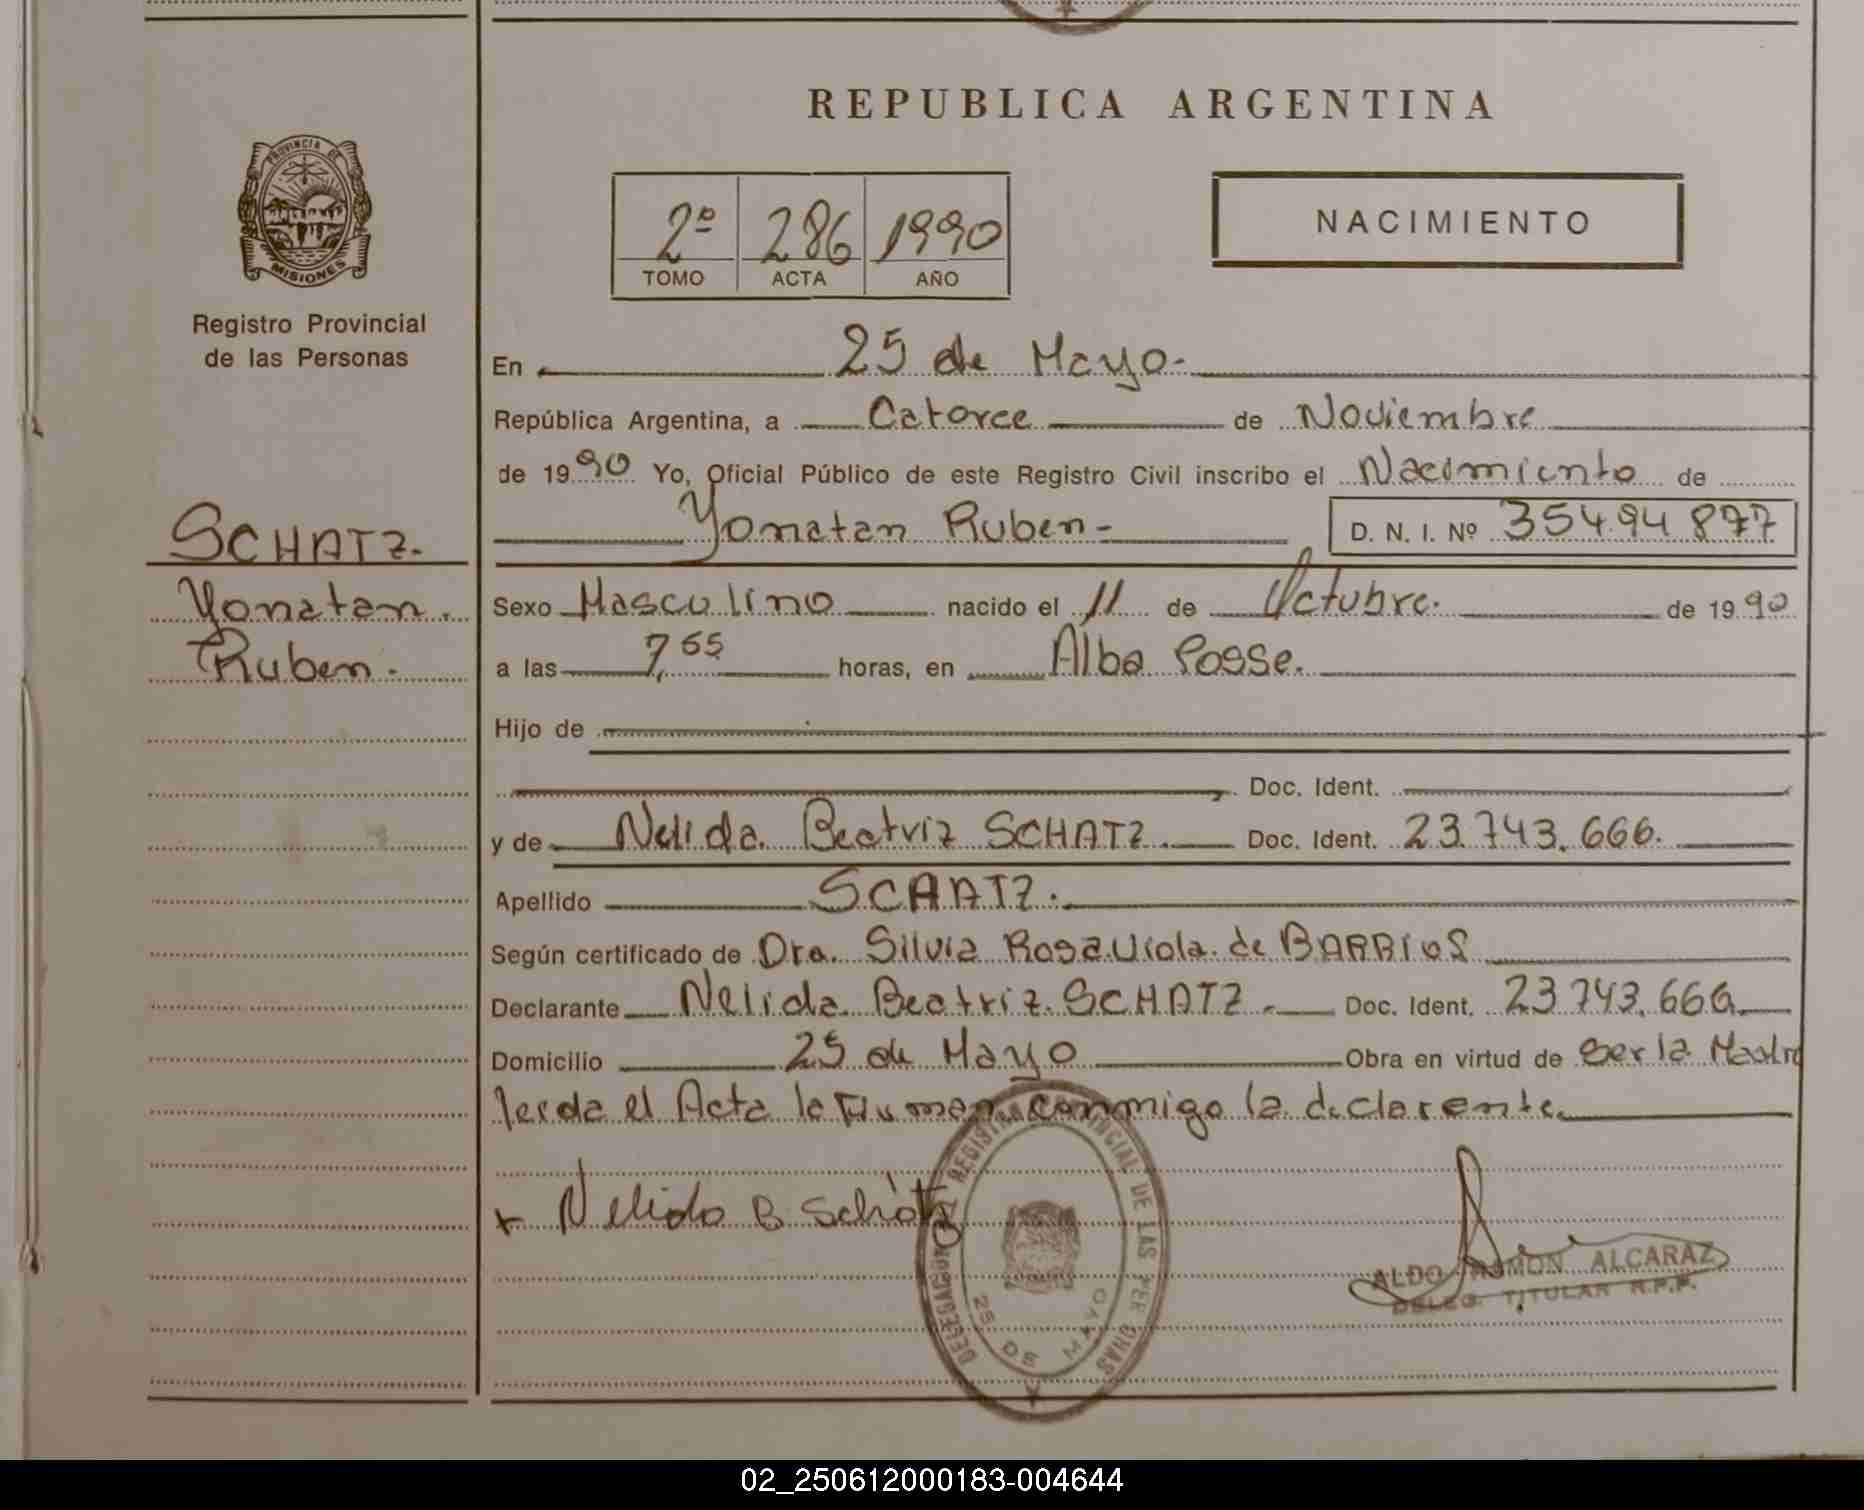 REPUBLICA ARGENTINA
PROVINCIA DE
MISIONES
Registro Provincial
de las Personas
2º 286 1990
TOMO ACTA AÑO
NACIMIENTO
En 25 de Mayo.
República Argentina, a Catorce de Noviembre
de 1990 Yo, Oficial Público de este Registro Civil inscribo el Nacimiento de
Yonatan Ruben- D. N. I. Nº 35494877
SCHATZ.
Yonatan.
Ruben.
Sexo Masculino nacido el 11 de Octubre. de 1990
a las 7,55 horas, en Alba Posse.
Hijo de
Doc. Ident.
y de Nelida Beatriz SCHATZ. Doc. Ident. 23.743.666.
Apellido SCHATZ.
Según certificado de Dra. Silvia Rosa Viola de BARRIOS
Declarante Nelida Beatriz SCHATZ. Doc. Ident. 23.743.666
Domicilio 25 de Mayo Obra en virtud de ser la Madre
leida el Acta la Firman conmigo la declarente.
+ Nelida B Schatz
DELEGACION REGISTRO PROVINCIAL DE LAS PERSONAS
25 DE MAYO
ALDO RAMON ALCARAZ
DELEG. TITULAR R.P.P.
02_250612000183-004644